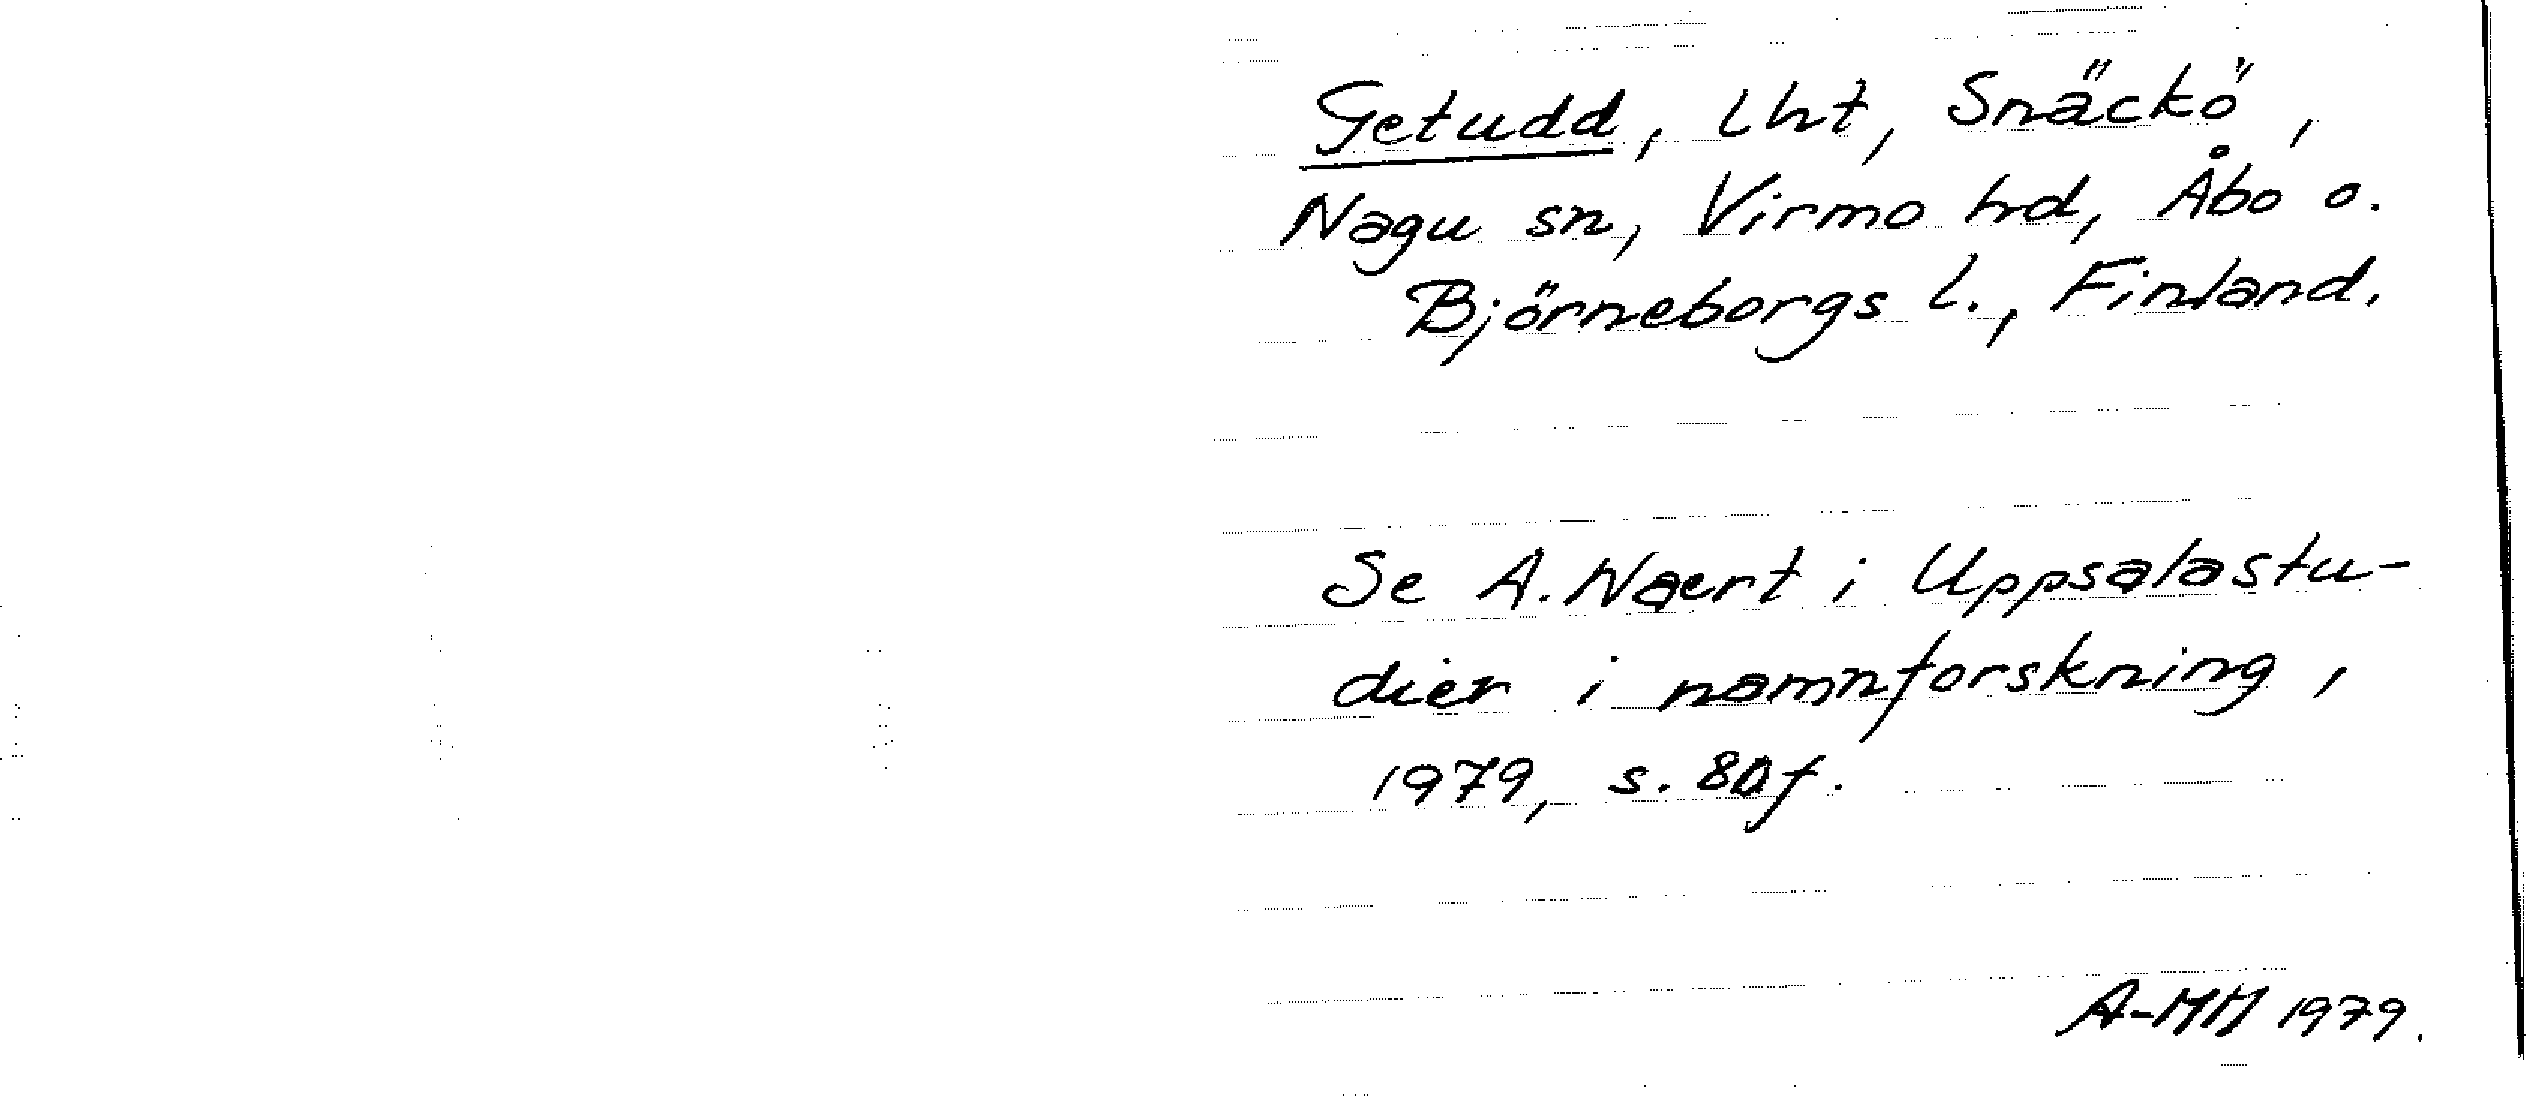 Getudd, lht, Snäckö,
Nagu sn, Virmo hd, Åbo o.
Björneborgs l., Finland.
Se A. Naert i Uppsalastu-
dier i namnforskning,
1979, s. 80f.
A-MH 1979.